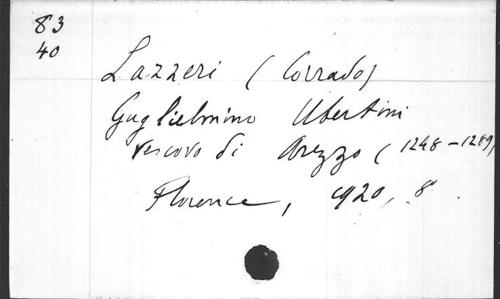 83
40
Lazzeri (Corrado)
Guglielmino Ubertini
vescovo di Arezzo (1248-1289)
Florence, 1920, 8°